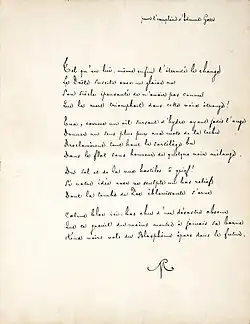 pour l'exemplaire d'Edmund Gosse
Tel qu'en lui-même enfin l'éternité le change
Le Poëte suscite avec un glaive nu
Son siècle épouvanté de n'avoir pas connu
Que la mort triomphait dans cette voix étrange!
Eux, comme un vil sursaut d'hydre oyant jadis l'ange
Donner un sens plus pur aux mots de la tribu
Proclamèrent haut le sortilège bu
Dans le flot sans honneur de quelque noir mélange.
Du sol et de la nue hostiles ô grief!
Si notre idée avec ne sculpte un bas relief
Dont la tombe de Poe éblouissante s'orne
Calme bloc ici-bas chu d'un désastre obscur
Que ce granit du moins montre à jamais sa borne
Aux noirs vols du Blasphème épars dans le futur.